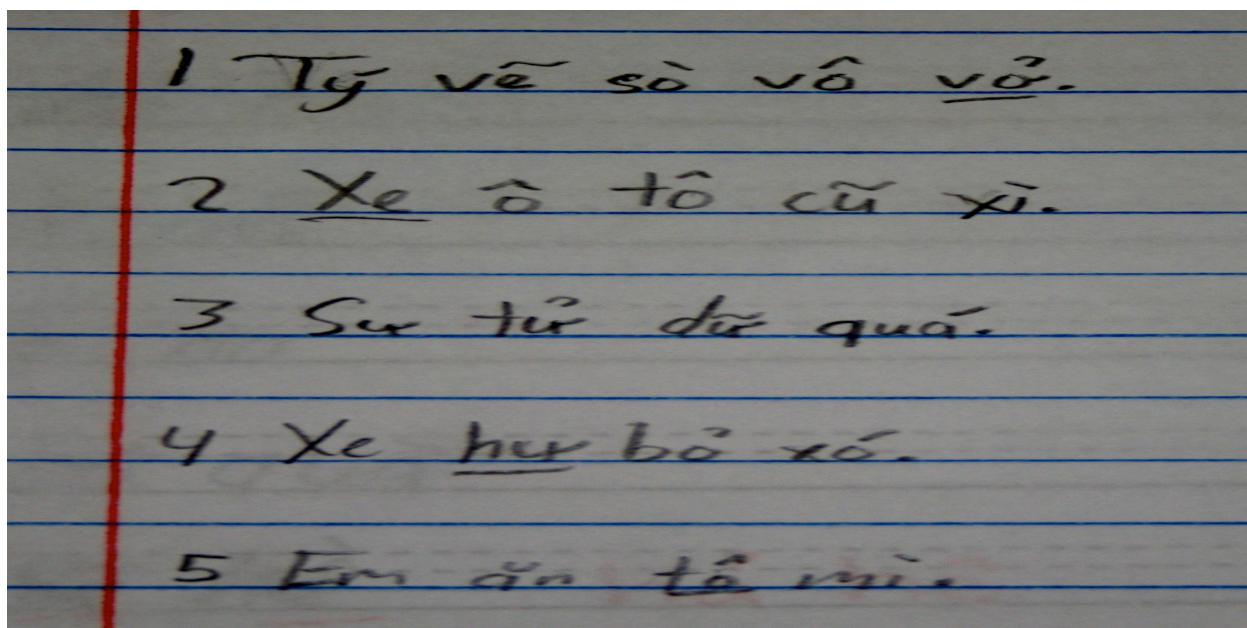 1 Tý vẽ sò vô vở.
2 Xe ô tô cũ xì.
3 Sư tử dữ quá.
4 Xe hư bỏ xó.
5 Em ăn tô mì.